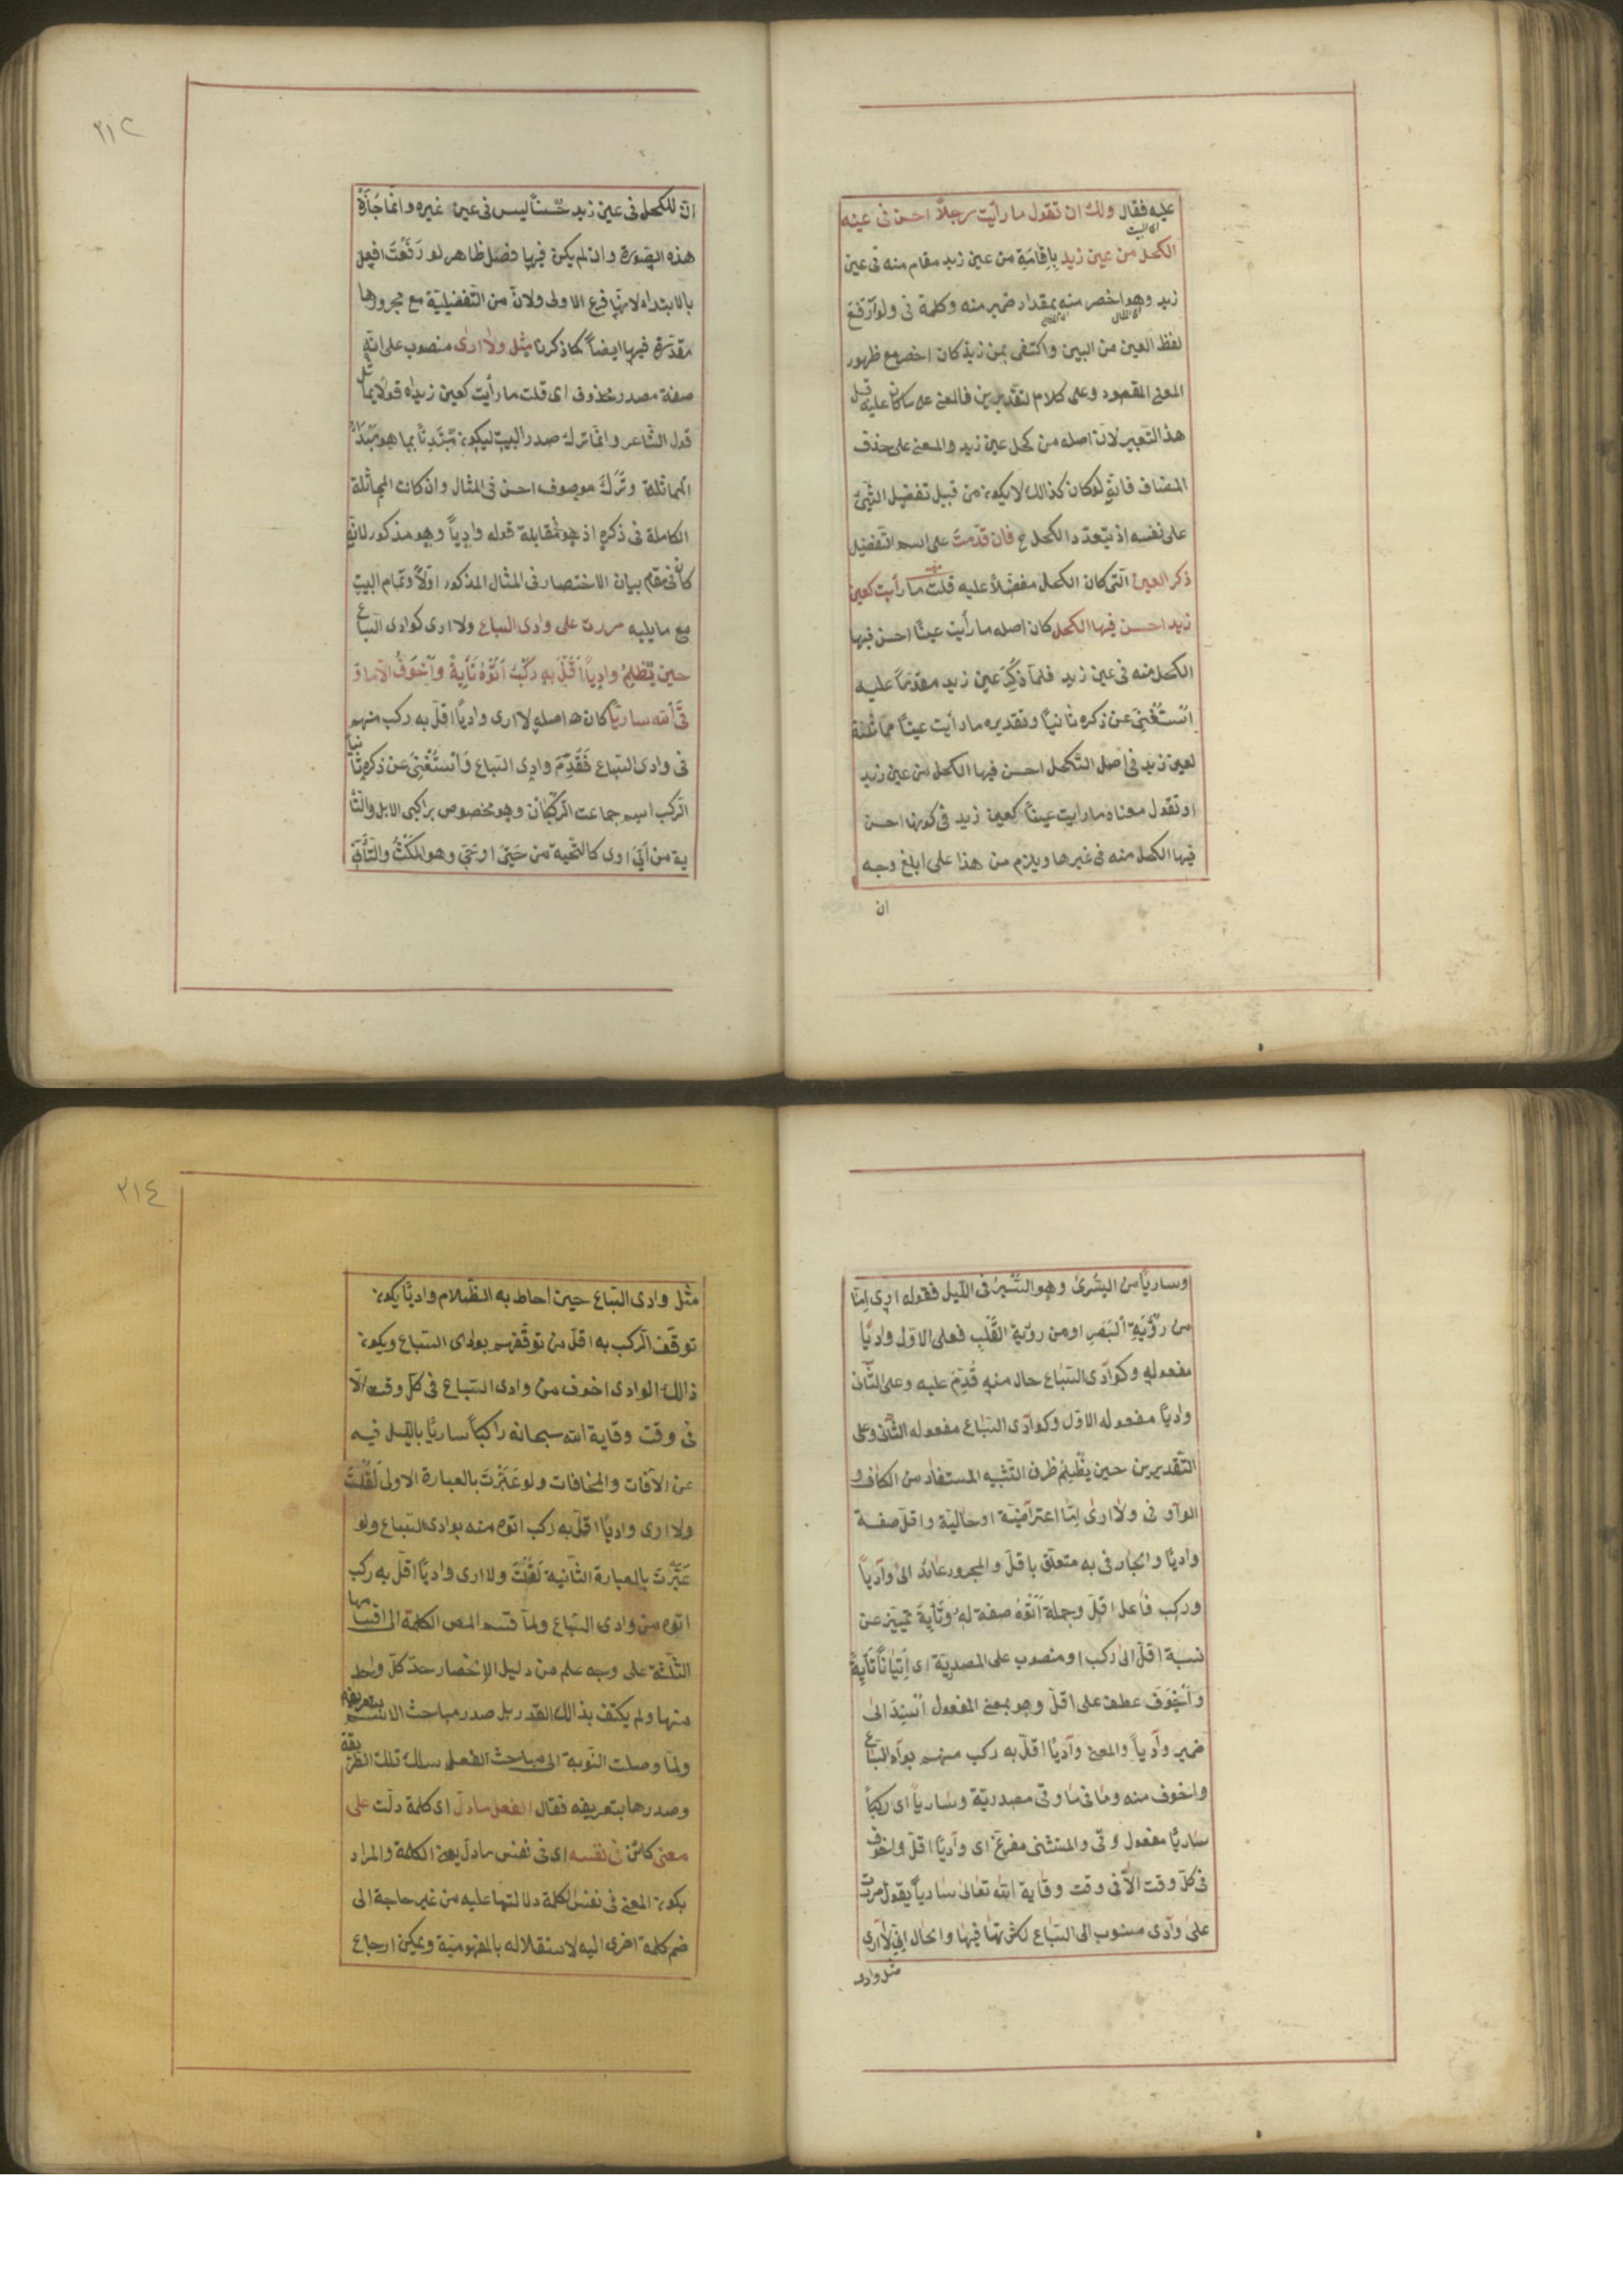 عليه فقال ولك ان تقول ما رأيت رجلاً احسن فى عينه
الكحل من عين زيد بِاِقامَةِ من عين زيد مقام منه فى عين
زيد وهو اخصر منه بمقدار ضمير منه وكلمة فى ولو رَفعَ
لفظ العين من البين واكتفى بمن زيد كان اخصر مع ظهور
المعنى المقصود وعلى كلام التقديرين فالمعنى على ما كان عليه قبل
هذا التعبير لانّ اصله من كحل عين زيد والمعنى على حذف
المضاف فانّه لو كان كذالك لا يكون من قبيل تفضيل الشيئ
على نفسه اذ يتعدّد الكحل ح فان قدّمتَ على اسم التفضيل
ذكر العين الّتى كان الكحل مفضّلاً عليه قلت ما رأيت كعين
زيد احسن فيها الكحل كان اصله ما رأيت عينًا احسن فيها
الكحل منه فى عين زيد فلمّا ذُكِرَ عين زيد مقدّماً عليه
اسْتُغْنِىَ عن ذكره ثانيًا وتقديره ما رأيت عينًا مماثلة
لعين زيد فى اصل التكحل احسن فيها الكحل من عين زيد
او تقول معناه ما رايت عينًا كعين زيد فى كونها احسن
فيها الكحل منه فى غيرها ويلزم من هذا على ابلغ وجه
ان
٢١٣
انّ للكحل فى عين زيد حُسناً ليس فى عين غيره وانّما جَازَتْ
هذه الصّورة وان لم يكن فيها فصل ظاهر لو رَفَعْتَ افعل
بالابتداء لانها فرع الاولى ولانّ من التّفضيليّة مع مجرورها
مقدّرة فيها ايضاً كما ذكرنا مثل ولا ارى منصوب على انّه
صفة مصدر محذوف اى قلت ما رأيت كعين زيد اه قولاً يماثل
قول الشّاعر وانّما ترك صدر البيت ليكون مُبْتَدِئًا بما هو مَبْدَأُ
المماثلة وتَرَكَ موصوف احسن فى المثال وان كانت المماثلة
الكاملة فى ذكره اذ هو بمقابلة قوله واديًا وهو مذكور لانّه
كان فى مقام بيان الاختصار فى المثال المذكور اوّلاً وتمام البيت
مع ما يليه مررت على وادى السّباع ولا ارى كوادى السّباع
حين يُظْلِمُ واديًا اَقَلَّ بِهِ رَكْبٌ اَتَوْهُ تَأيِةً وَاَخْوَفُ اِلاّ ما وَ
قَى الله ساريًا كان اصله لا ارى واديًا اقلّ به ركب منهم
فى وادى السّباع فَقُدِّمَ وادى السّباع وَاُسْتُغْنِىَ عن ذكره ثانيًا
الرّكب اسم جماعت الرّكبان وهو مخصوص براكبى الابل والتّأ
ية من اَيَىَ اوى كالتحية من حَيَىَ او حَىَّ وهو المَكْثُ والتأنّى
وساريًا من السُّرىٰ وهو السَّيْرُ فى اللّيل فقوله ارى امّا
من رُؤْيَةِ اَلبَصَرِ او من رؤيةِ القَلْبِ فعلى الاوّل واديًا
مفعوله وكوادى السّباع حال منه قُدِّمَ عليه وعلى الثّانى
واديًا مفعوله الاوّل وكوادى السّباع مفعوله الثّانى وعلى
التّقديرين حين يُظْلِمُ ظرف التّشبيه المستفاد من الكاف و
الواو فى ولا ارى امّا اعتراضيّة او حاليّة واقلّ صفة
واديًا والجار فى به متعلّق باقلّ والمجرور عائد الى واديًا
وركب فاعل اقلّ وجملة اَتَوْهُ صفة لَهُ وَتَأيِةً تمييز عن
نسبة اقلّ الى ركب او منصوب على المصدريّة اى اِتْيَاناً تَأيِةً
وَاَخْوَفَ عطف على اقلّ وهو بمعنى المفعول اُسْنِدَ الى
ضمير واديًا والمعنى واديًا اقلّ به ركب منهم بوادى السّباع
واخوف منه وما فى ما وقى مصدريّة وساريًا اى ركبًا
ساريًا مفعول وقى والمستثنى مفرغ اى واديًا اقلّ واخوف
فى كلّ وقت الاّ فى وقت وقاية الله تعالى ساريًا يقول مررت
على وادى منسوب الى السّباع لكثرتها فيها والحال انّى لا ارى
مثل وادى
٢١٤
مثل وادى السّباع حين احاط به الظّلام واديًا يكون
توقّف الرّكب به اقلّ من توقّفهم بوادى السّباع ويكون
ذالك الوادى اخوف من وادى السّباع فى كلّ وقت الّا
فى وقت وقاية الله سبحانه راكبًا ساريًا باللّيل فيه
عن الآفات والمخافات ولو عَبَّرْتَ بالعبارة الاولى لَقُلْتَ
ولا ارى واديًا اقلّ به ركب اتوه منه بوادى السّباع ولو
عَبَّرْتَ بالعبارة الثّانية لَقُلْتَ ولا ارى واديًا اقلّ به ركب
اتوه من وادى السّباع ولمّا قسم المص الكلمة الى اقسامها
الثّلثة على وجه علم من دليل الانحصار حدّ كلّ واحد
منها ولم يكتف بذالك القدر بل صدر مباحث الاسم بتعريفه
ولمّا وصلت النّوبة الى مباحث الفعل سلك تلك الطّريقة
وصدرها بتعريفه فقال الفعل ما دلّ اى كلمة دلّت على
معنى كائن فى نفسه اى فى نفس ما دلّ يعنى الكلمة والمراد
بكون المعنى فى نفس الكلمة دلالتها عليه من غير حاجة الى
ضم كلمة اخرى اليه لاستقلاله بالمفهوميّة ويمكن ارجاع